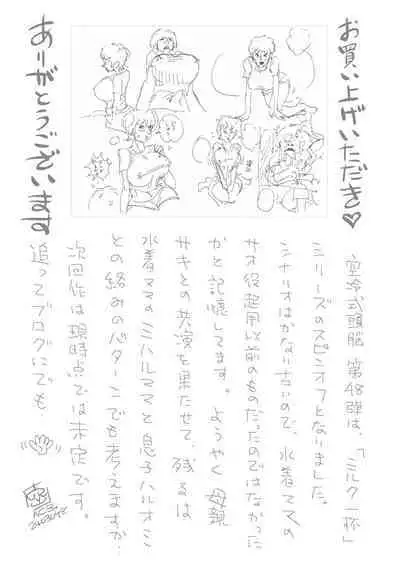 お買い上げいただき♡
ありがとうございます
空冷式頭脳 第48弾は、「ミルク一杯」
シリーズのスピンオフとなりました。
シナリオはかなり古いので、水着ママの
サオ役起用以前のものだったのではなかった
かと記憶してます。ようやく 母親
サキとの共演を果たせて、残るは
水着ママのミハルママと息子ハルオミ
との絡めのパターンでも考えますか。
次回作は現時点では未定です。
追ってブログにでも、